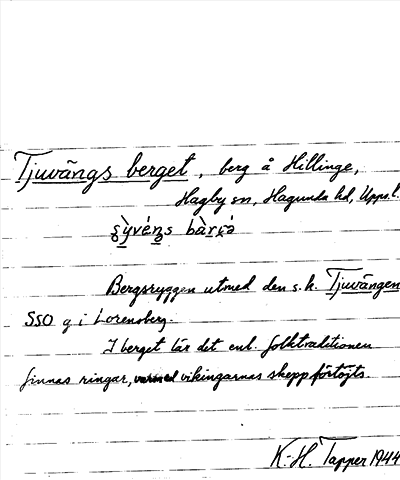 Tjuvängs berget, berg å Hillinge,
Hagby sn, Hagunda hd, Upps. l.
Bergsryggen utmed den s.k. Tjuvängen
SSO g i Lorensberg.
I berget lär det enl. folktraditionen
finnas ringar, varmed vikingarnas skepp förtöjts.
K.-H. Tapper 1944